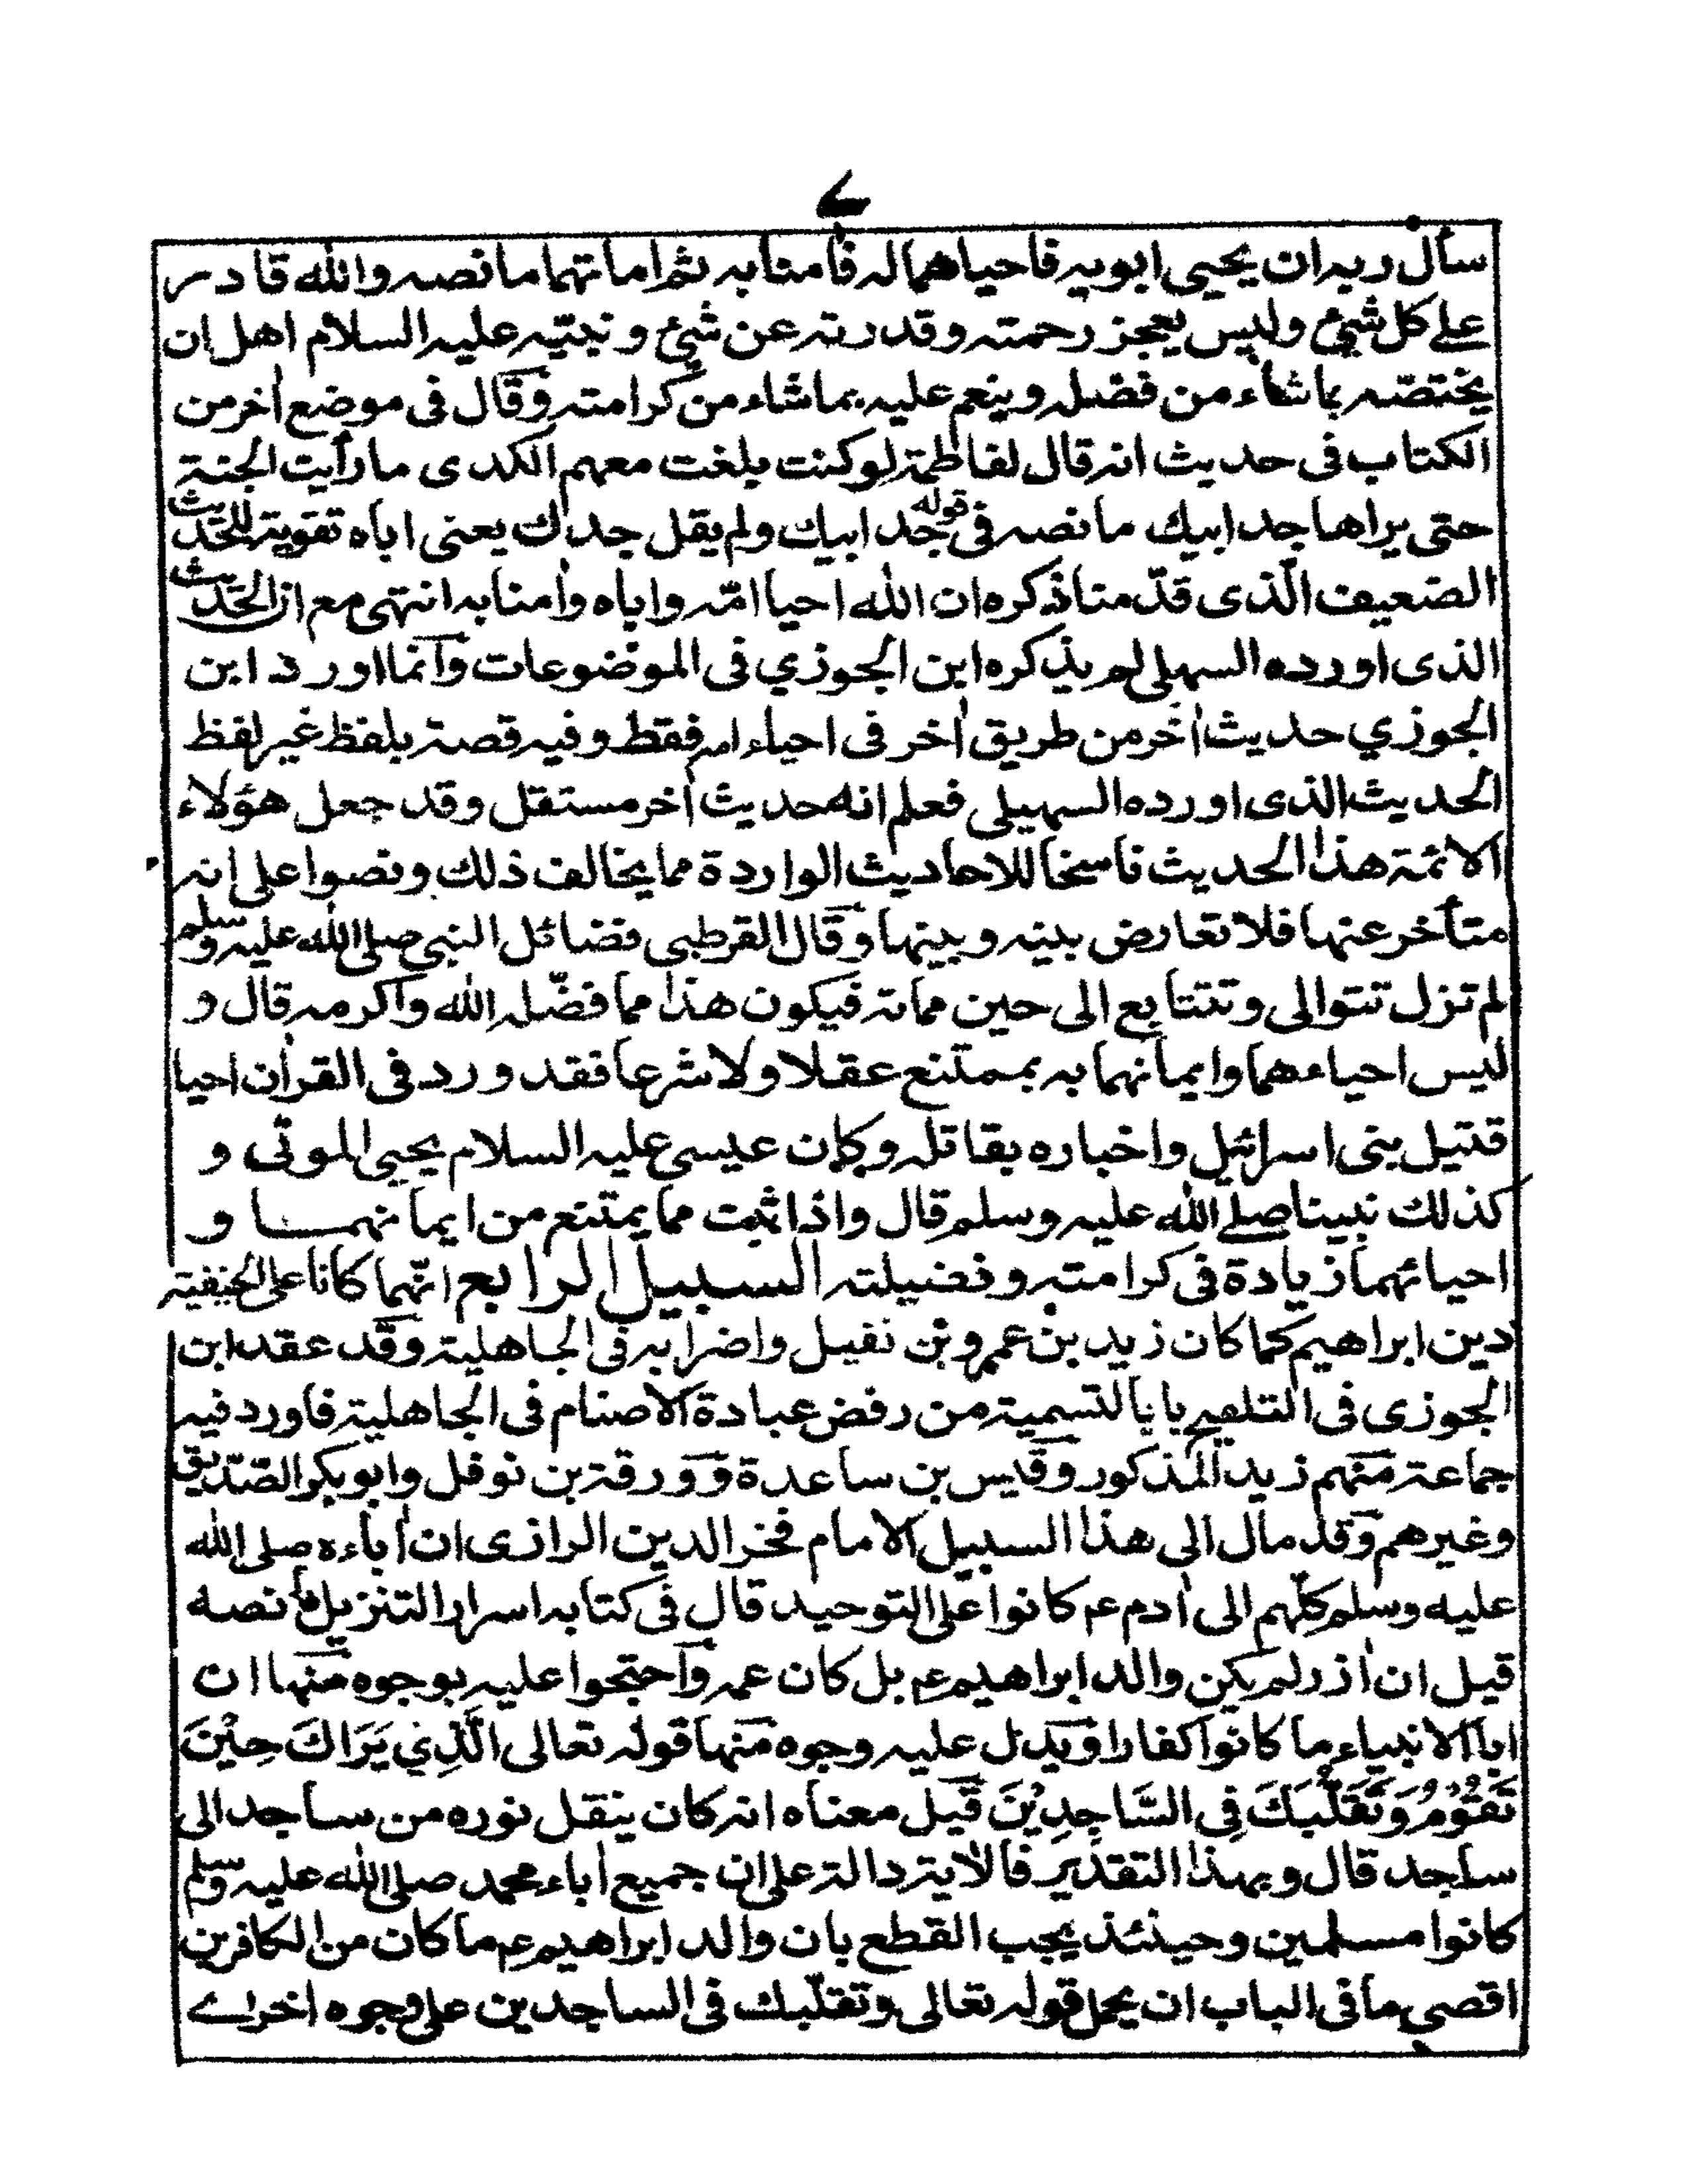 ٧
سأل ربه ان يحيى ابويه فاحياهما له فأمنا به ثم اماتهما ما نصه والله قادر
على كل شيئ وليس يعجز رحمته وقدرته عن شيئ ونبيّه عليه السلام اهل ان
يختصّه بما شاء من فضله وينعم عليه بما شاء من كرامته وقال فى موضع أخر من
الكتاب فى حديث انه قال لفاطمة لو كنت بلغت معهم الكدى ما رأيت الجنة
حتى يراها جد ابيك ما نصه فى قوله جد ابيك ولم يقل جدك يعنى اباه تقوية للحديث
الضعيف الّذى قدّمنا ذكره ان الله احيا امّه واباه وأمنا به انتهى مع ان الحديث
الذى اورده السهيلى لم يذكره ابن الجوزي فى الموضوعات وانما اورد ابن
الجوزي حديث أخر من طريق أخر فى احياء امه فقط وفيه قصة بلفظ غير لفظ
الحديث الذى اورده السهيلى فعلم انه حديث أخر مستقل وقد جعل هؤلاء
الائمة هذا الحديث ناسخا للاحاديث الواردة مما يخالف ذلك ونصوا على انه
متأخر عنها فلا تعارض بينه وبينها وقال القرطبى فضائل النبى صلى الله عليه وسلم
لم تزل تتوالى وتتتابع الى حين مماته فيكون هذا مما فضّله الله واكرمه قال و
ليس احياءهما وايمانهما به بممتنع عقلا ولا شرعا فقد ورد فى القرأن احيا
قتيل بنى اسرائيل واخباره بقاتله وكان عيسى عليه السلام يحيى الموتى و
كذلك نبينا صلے الله عليه وسلم قال واذا ثبت مما يمتنع من ايمانهما و
احيائهما زيادة فى كرامته وفضيلته السبيل الرابع انّهما كانا على الحنيفية
دين ابراهيم كما كان زيد بن عمرو بن نفيل واضرابه فى الجاهلية وقد عقد ابن
الجوزى فى التلقيح بابا بالتسمية من رفض عبادة الاصنام فى الجاهلية فاورد فيه
جماعة منهم زيد المذكور وقيس بن ساعدة وورقة بن نوفل وابو بكر الصّدّيق
وغيرهم وقد مال الى هذا السبيل الامام فخر الدين الرازى ان أباءه صلى الله
عليه وسلم كلّهم الى أدم عم كانوا على التوحيد قال فى كتابه اسرار التنزيل ما نصه
قيل ان أزر لم يكن والد ابراهيم عم بل كان عمه واحتجوا عليه بوجوه منها ان
اباا الانبياء ما كانوا كفارا ويدل عليه وجوه منها قوله تعالى الَّذِي يَرَاكَ حِيْنَ
تَقُوْمُ وَتَقَلُّبَكَ فِى السَّاجِدِيْنَ قيل معناه انه كان ينقل نوره من ساجد الى
ساجد قال وبهذا التقدير فالأية دالة على ان جميع أباء محمد صلى الله عليه وسلم
كانوا مسلمين وحينئذ يجب القطع بان والد ابراهيم عم ما كان من الكافرين
اقصى ما فى الباب ان يحمل قوله تعالى وتقلّبك فى الساجدين على وجوه اخراے